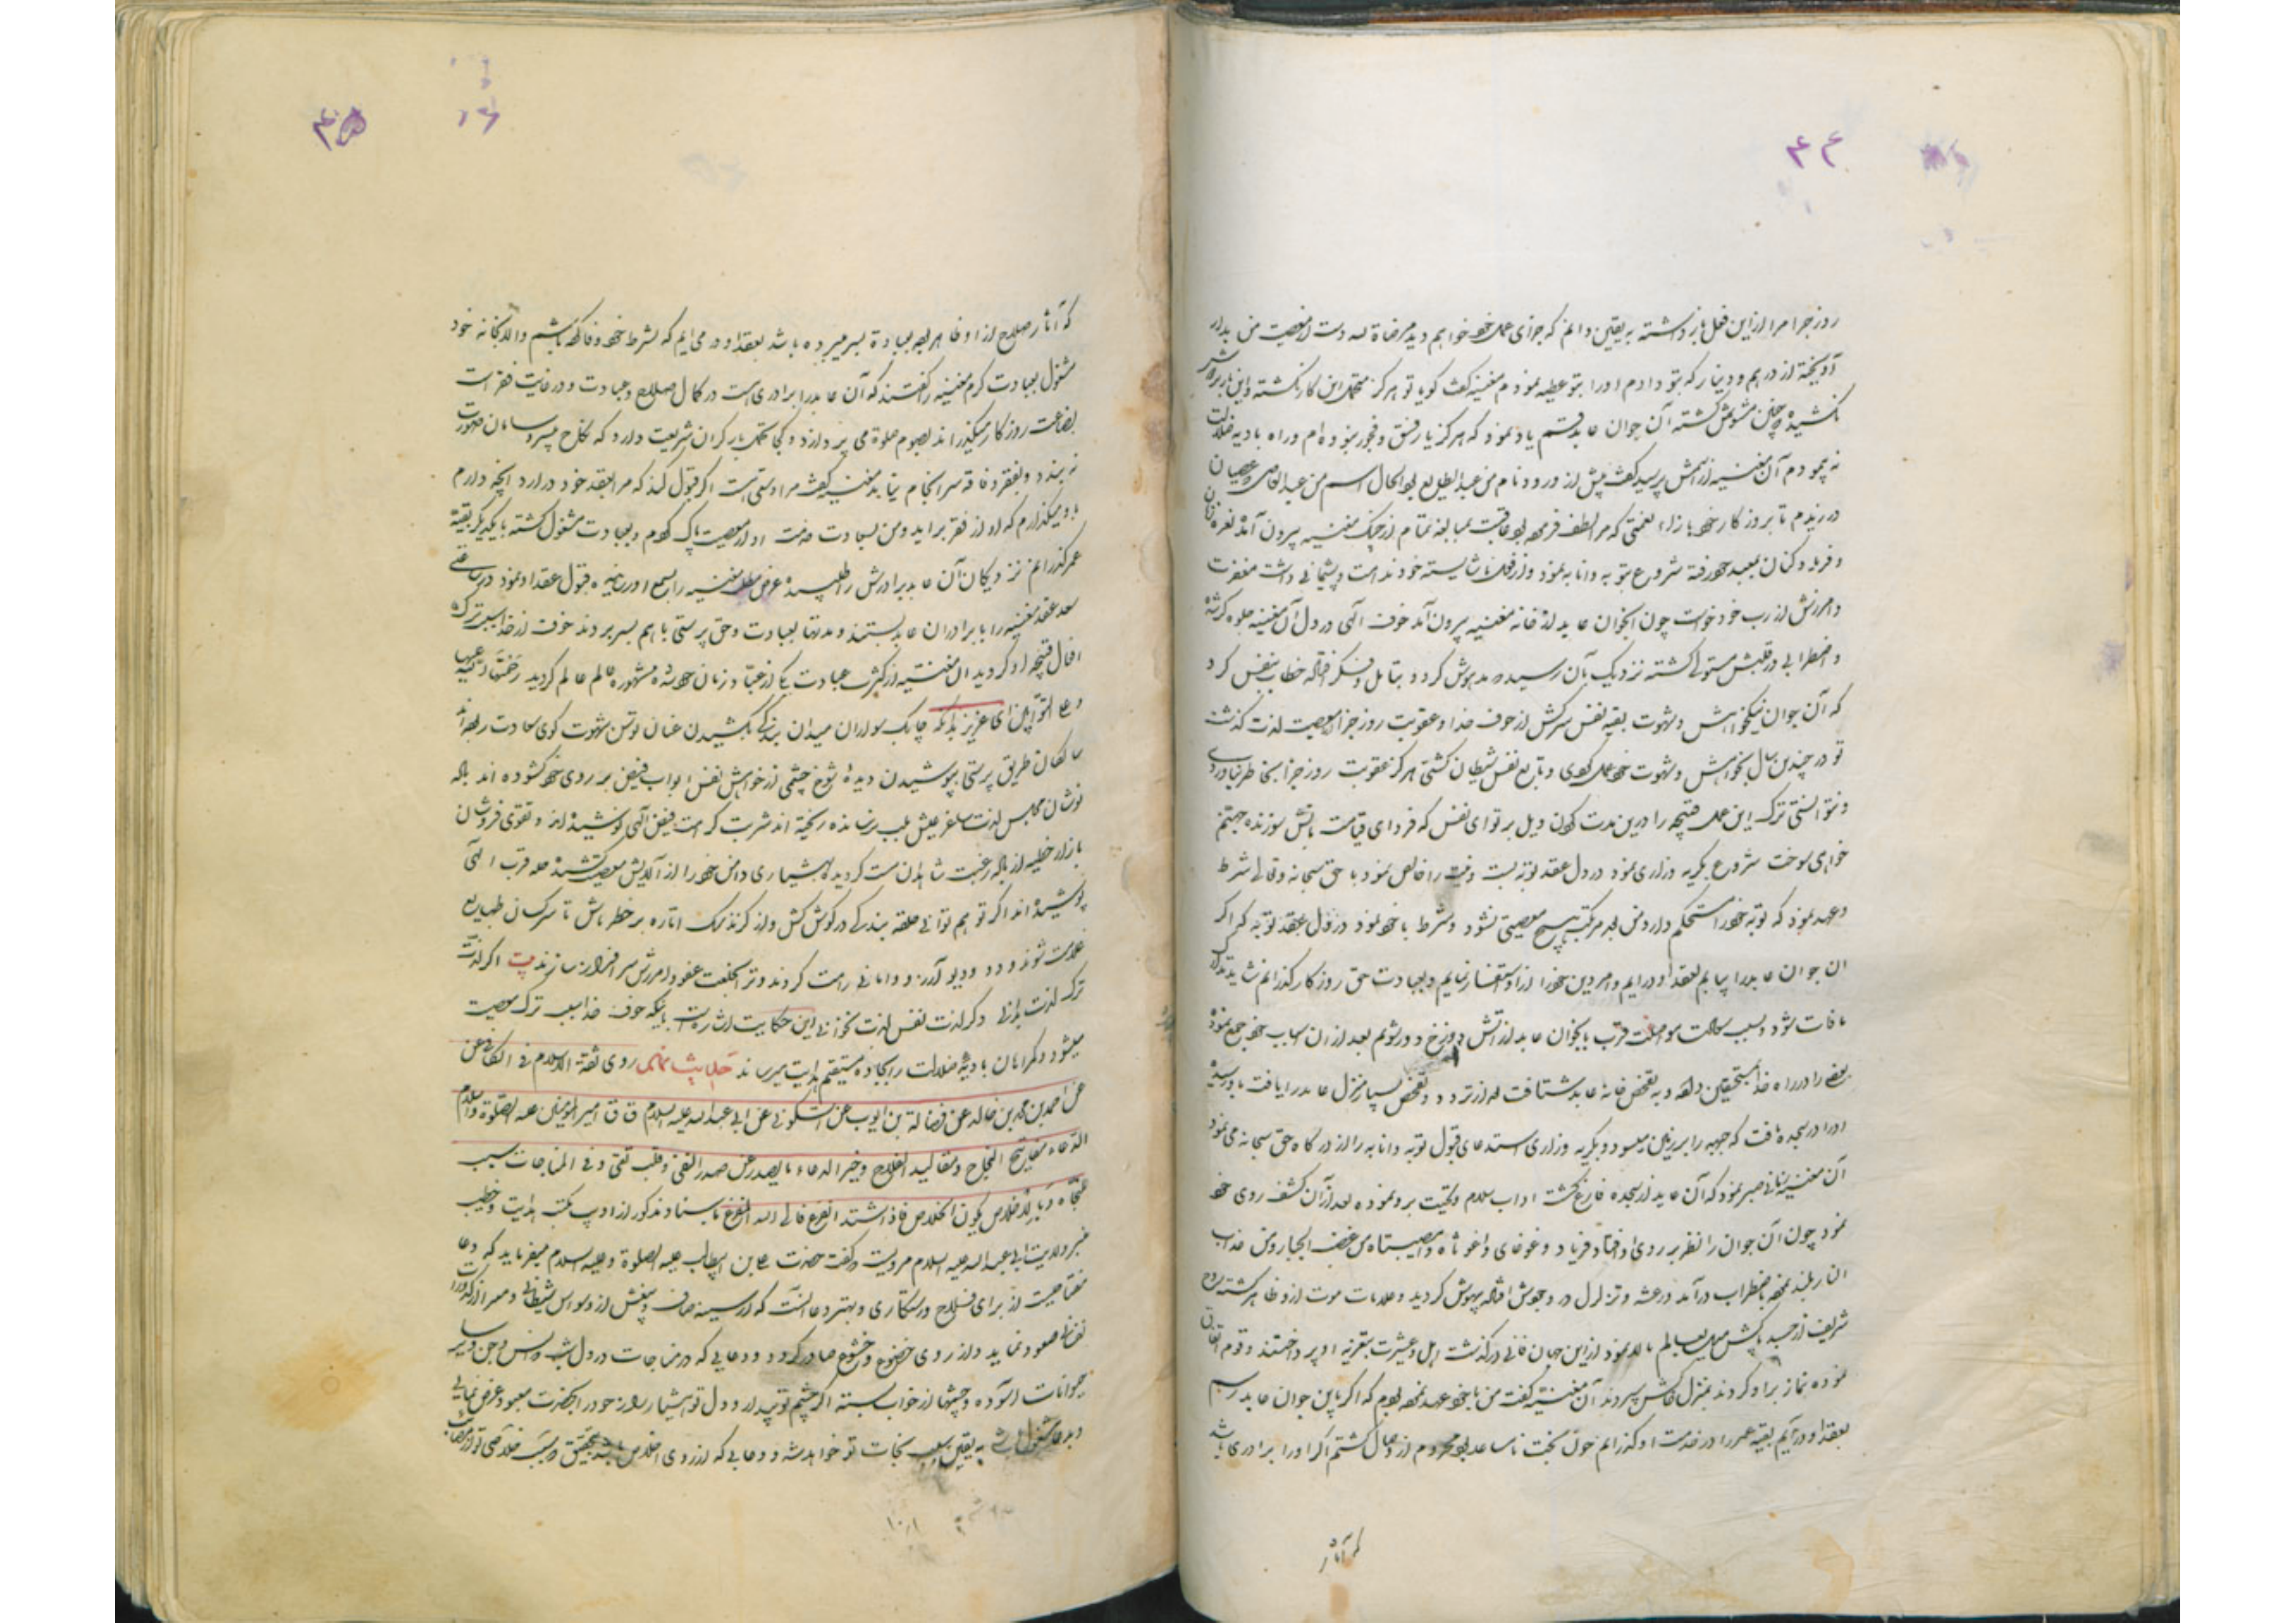 ۴۴
روز جزا مرا از این فعل باز داشته به یقین دانم که جزای عمل خود خواهم دید مرضاة لله دست از معصیت من بدار
آویخته از درهم و دینار که بتو دادم او را بتو عطیه نمودم مغنیه گفت کویا تو هرگز متحمل این کار نکشته و این بار بر دوش
نکشیده چنین مشوش کشته آن جوان عابد قسم یاد نمود که هرگز یار فسق و فجور نبوده ام و راه بادیه ضلالت
نه پیمودم آن مغنیه از اسمش پرسید گفت پیش از ورود نام من عبد المطیع بود الحال اسم من عبد العاصی عصیان
درزیدم تا بروز کار خود باز آ نعمتی که مرا لطف فرمود بود عاقبت بمبالغه تمام از چنک مغنیه بیرون آمد نعره زنان
و فریاد کنان بمعبد خود رفته شروع بتوبه و انابه نمود و از فعل ناشایسته خود ندامت و پشیمانی داشت مغفرت
و امرزش از رب خود خواست چون انجوان عابد از خانه مغنیه بیرون آمد خوف الهی در دل آن مغنیه جلوه کر شده
و اضطرابی در قلبش مستولی کشته نزدیک بآن رسید که مدهوش کردد بتامل و فکر افتاد خطاب بنفس کرد
که آن جوان نیکخواهش و شهوت بقیه نفس سرکش از خوف خدا و عقوبت روز جزا از معصیت لذت کذشت
تو در چندین سال بخواهش و شهوت خود عمل کردی و تابع نفس شیطان کشتی هرگز عقوبت روز جزا بخاطر نیاوردی
و نتوانستی ترک این عمل قبیحه را درین مدت کردن ویل بر تو ای نفس که فردای قیامت باتش سوزنده جهنم
خواهی سوخت شروع بکریه و زاری نمود در دل عقد توبه بست و نیت را خالص نمود با حق سبحانه و تعالی شرط
و عهد نمود که توبه خود را مستحکم دارد من بعد مرتکب هیچ معصیتی نشود و شرط با خود نمود در دل بعقد توبه که اکر
ان جوان عابد را بیابم بعقد او درایم و امر دین خود را از او استفسار نمایم و بعبادت حق روز کار کذرانم شاید تدارک
مافات شود و بسبب مواصلت قرب بانجوان عابد از آتش دوزخ دور شوم بعد از ان اسباب خود جمع نموده
بعضی را در راه خدا بمستحقین داد و به تفحص خانه عابد شتافت بعد از تردد و تفحص بسیار منزل عابد را یافت باو رسید
او را در سجده یافت که جبهه را بر زمین میسود و بکریه و زاری استدعای قبول توبه و انابه را از درگاه حق سبحانه می نمود
آن مغنیه زمانی صبر نمود که آن عابد از سجده فارغ کشت اداب سلام و تحیت برو نموده بعد از آن کشف روی خود
نمود چون آن جوان را نظر بر روی او افتاد فریاد و غوغای واغوثاه و امصیبتاه من غضب الجبار و من عذاب
النار بلند نمود باضطراب درآمد و رعشه و تزلزل در وجودش افتاد بیهوش کردید و علامات موت از و ظاهر کشته روح
شریف از جسد پاکش میل بعالم بالا نمود از این جهان فانی درگذشت اهل و عشیرت بتعزیه او پرداختند و قوم اتفاق
نموده نماز برا و کردند بمنزل خاکش سپردند آن مغنیه گفت من با خود عهد نموده بودم که اکر باین جوان عابد رسم
بعقد او درآیم بقیه عمر را در خدمت او کذرانم چون بخت ناساعد بود محروم از وصال کشتم اکر او را برادری باشد
که آثار
۴۵
که آثار صلاح از او ظاهر بود بعبادة بسر میبرده باشد بعقد او در می ایم که بشرط خود وفا کرده باشم و الا بخانه خود
مشغول بعبادت کردم مغنیه را گفتند که آن عابد را برادری است در کمال صلاح و عبادت و در غایت فقر است
بقناعت روز کار میکذراند بصوم صلوة می پردازد و کجا تحمل بار کران شریعت دارد که نکاح میسر و سامان صورت
نه بندد و بفقر و فاقه سر انجام نیابد مغنیه گفت مرا وسعتی هست اکر قبول کند که مرا بعقد خود درارد انچه دارم
باو میکذارم که او از فقر براید و من بسعادت خدمت او از معصیت پاک کردم و بعبادت مشغول کشته بایکدیکر بقیه
عمر کذرانیم نزدیکان آن عابد برادرش را طلبیده عرض مطلب مغنیه را بسمع او رسانیده قبول عقد او نمود در ساعتی
سعد عقد مغنیه را با برادر آن عابد بستند و مدتها بعبادت و حق پرستی باهم بسر بردند خوف از خدا سبب ترک
افعال قبیحه او کردید ان مغنیه از کثرت عبادت یکی از عباد زمان خود شده مشهوره عالم کردید
ای عزیز بدانکه چابک سواران میدان بندکی بکشیدن عنان توسن شهوت کوی سعادت ربوده اند
سالکان طریق پرستی بپوشیدن دیده شوخ چشمی از خواهش نفس ابواب فیض بر روی خود کشوده اند باده
نوشان مجلس لذت ساغر عیش بلب نرسانده ریخته اند شربت کرامت فیض الهی نوشیده اند و تقوی فروشان
بازار خطیه از باده رغبت شاهدان مست کردیده بهشیاری دامن خود را از آلایش معصیت کشیده حله قرب الهی
پوشیده اند اکر تو هم توانی حلقه بندکی در کوش کش و از کزند سک اماره بر خطر باش تا سرکشان طبایع
غلامت شوند و دد و دیو آرزو و امانی رامت کردند و ترا بخلعت عفو و امرزش سرافراز سازند بیت اکر لذت
ترک لذت بدانی دکر لذت نفس لذت نخوانی این حکایت اشارتست باینکه خوف خدا سبب ترک معصیت
میشود و کمراهان بادیه ضلالت را بجاده مستقیم هدایت میرساند حدیث روی ثقة الاسلام فی الکافی عن
عن احمد بن محمد بن خالد عن فضالة بن ایوب عن السکونی عن ابی عبد الله علیه السلام ق ق امیر المؤمنین علیه الصلوة والسلام
الدعاء مفاتیح النجاح و مقالید الفلاح و خیر الدعاء ما یصدر عن صدر النقی و قلب تقی و فی المناجات سبب
النجاة و بالاخلاص یکون الخلاص فاذا اشتد الفزع فالی الله المفزع باسناد مذکور از ادیب مکتب هدایت و خطیب
منبر ولایت ابی عبد الله علیه السلام مرویست که گفت حضرت علی بن ابیطالب علیه الصلوة و علیه السلام میفرماید که دعا
مفتاحیست از برای فلاح و رستکاری و بهترین دعا آنست که از سینه صاف و بیغش از وسواس شیطانی و مبرا از کدورات
نفسانی صعود نماید و از روی خضوع و خشوع صادر کردد و دعایی که در مناجات در دل شب و انس و جن و سایر
حیوانات آسوده و چشمها از خواب بسته اکر چشم تو بیدار و دل تو هشیار بود
و بدعا مشغول باشی به یقین سبب نجات تو خواهد شد و دعایی که از روی اخلاص باشد بتحقیق که سبب خلاصی تو از